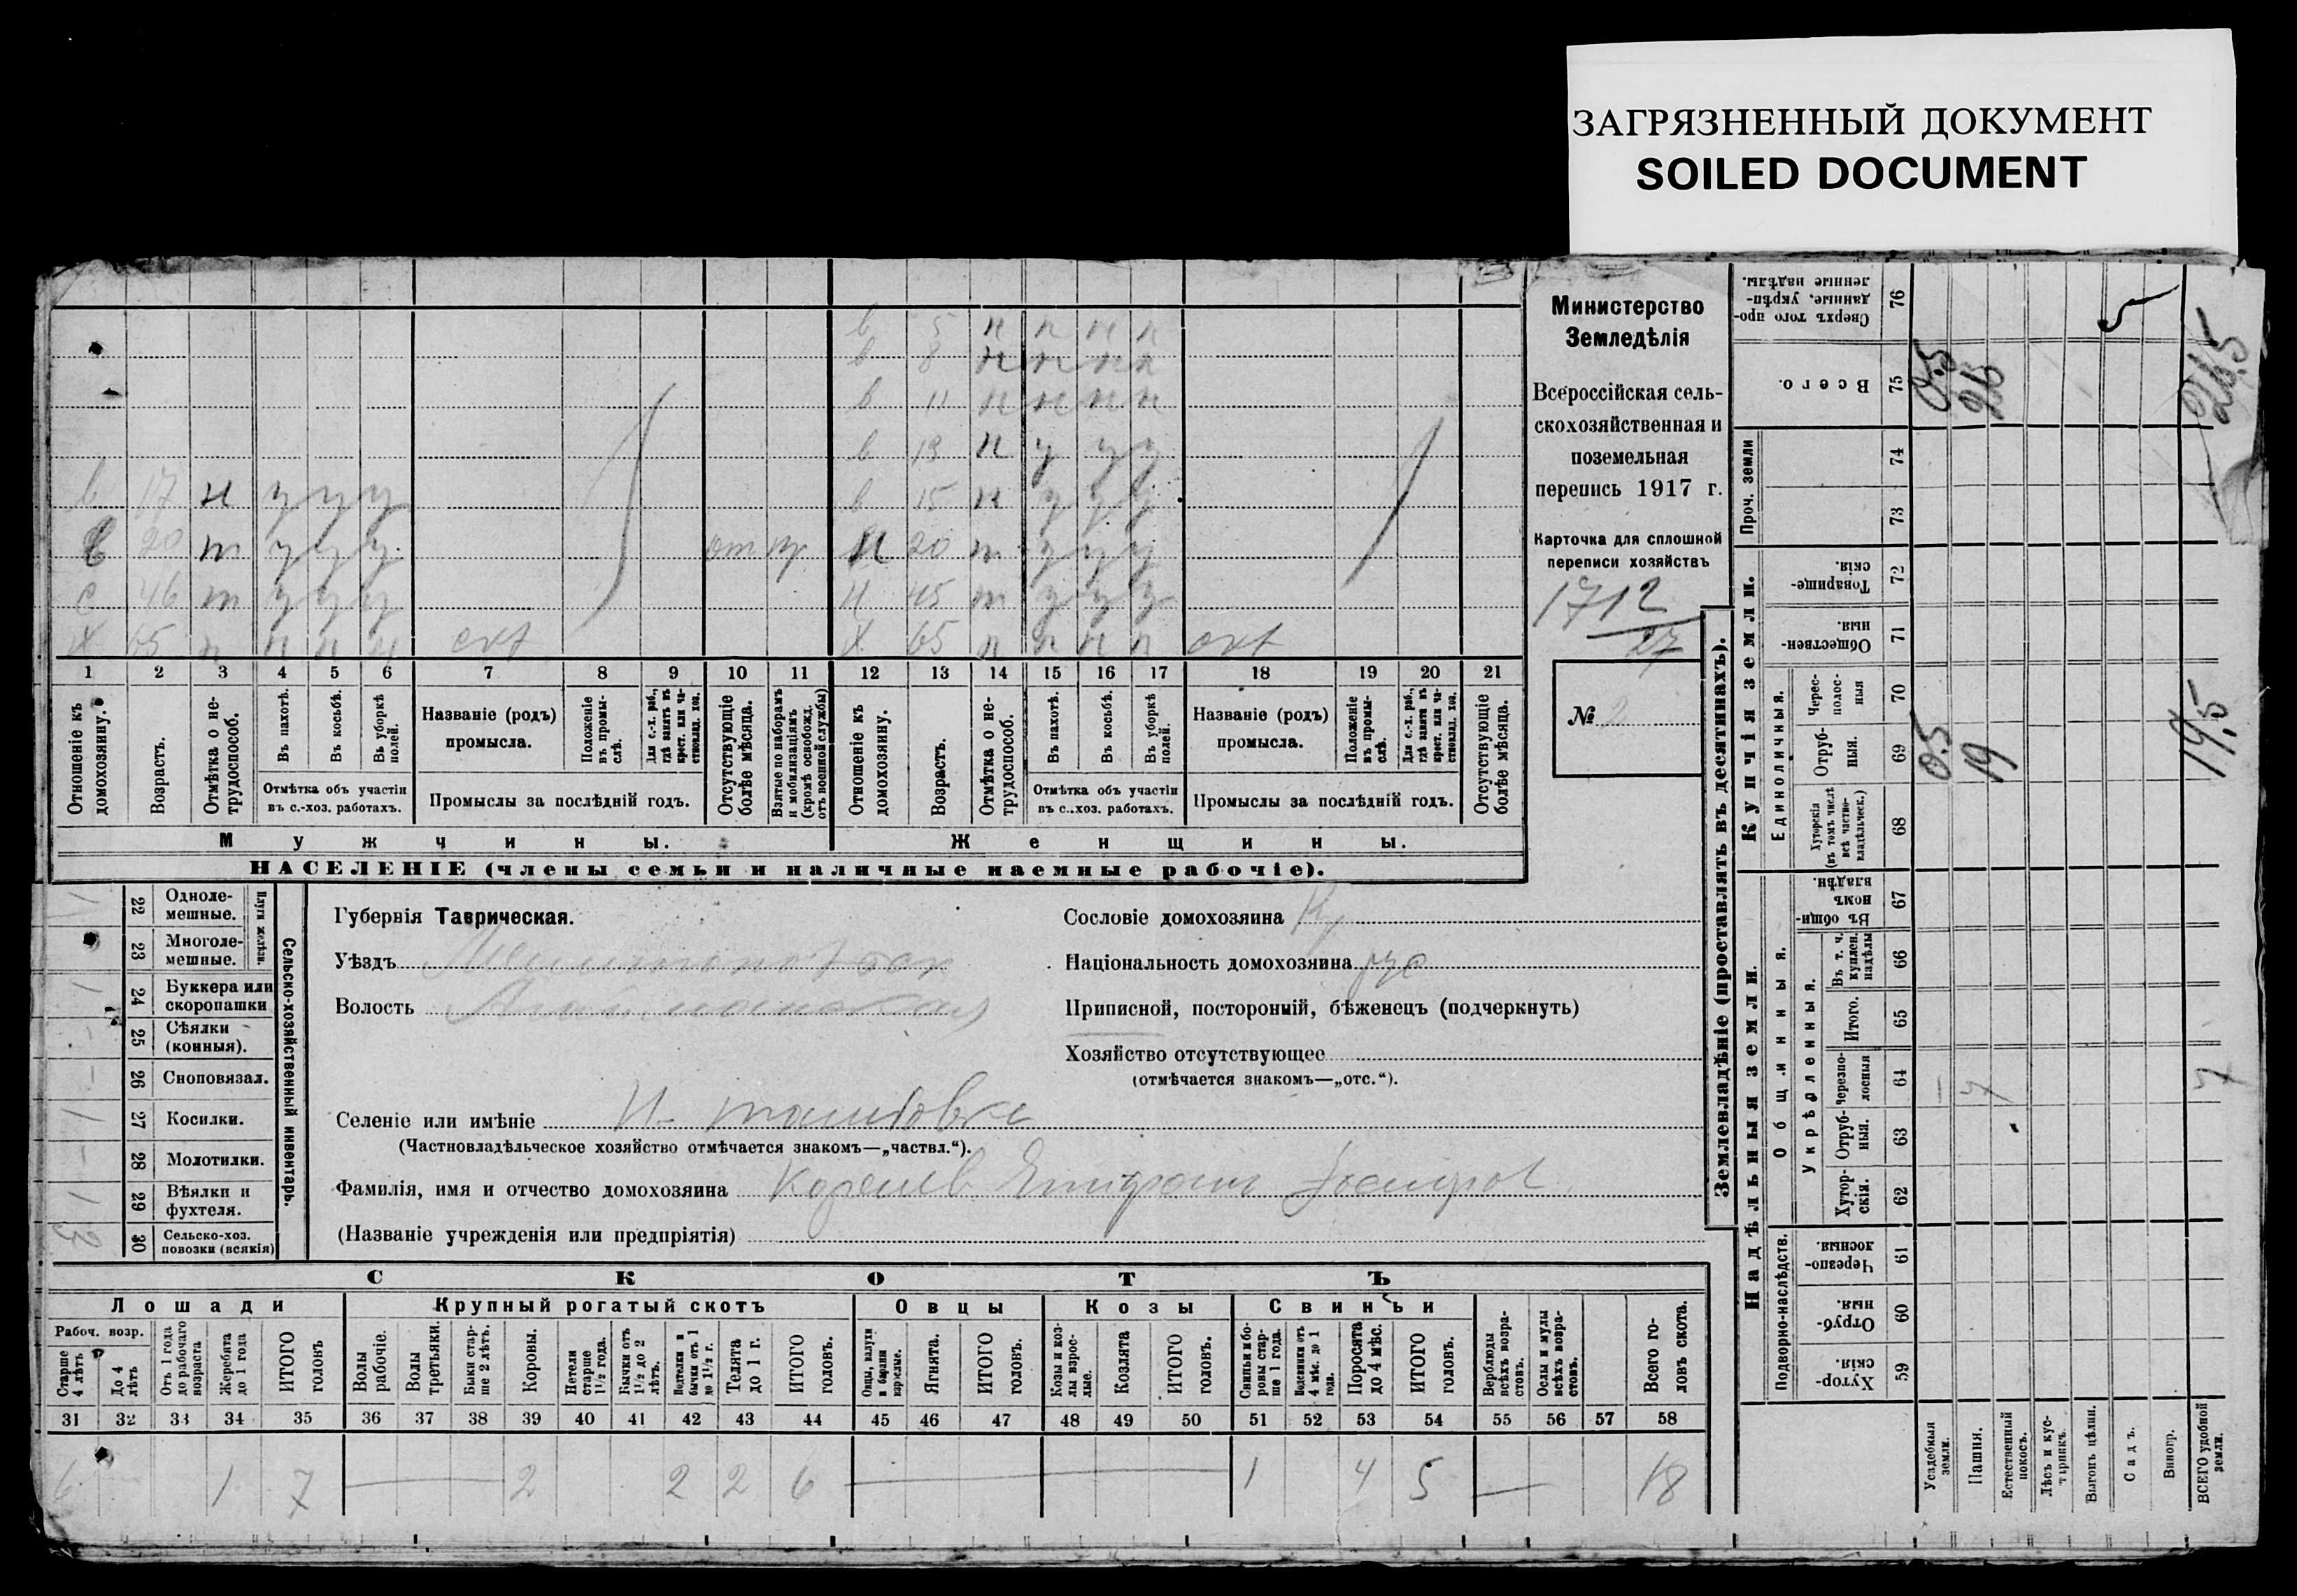 ЗАГРЯЗНЕННЫЙ ДОКУМЕНТ
SOILED DOCUMENT
Министерство
Земледѣлія
Всероссійская сель-
скохозяйственная и
поземельная
перепись 1917 г.
Карточка для сплошной
переписи хозяйствъ
1712
27
№ 2
в 5 н н н н
в 8 н н н н
в 11 н н н н
в 13 н у у у
в 17 н у у у в 15 н у у у
20 т у у у от 20 т у у у
с 46 т у у у 45 т у у у
Х 65 Х 65
1 2 3 4 5 6 7 8 9 10 11 12 13 14 15 16 17 18 19 20 21
Отношеніе къ домохозяину.
Возрастъ.
Отмѣтка о не-трудоспособ.
Въ пахотѣ.
Въ косьбѣ.
Въ уборкѣ полей.
Отмѣтка объ участіи въ с.-хоз. работахъ.
Названіе (родъ) промысла.
Положеніе въ промы-слѣ.
Для с.-х. раб., гдѣ занятъ въ крест. или ча-стновлад. хоз.
Промыслы за послѣдній годъ.
Отсутствующіе болѣе мѣсяца.
Взятые по наборамъ и мобилизаціямъ (кромѣ освобожд. отъ военной службы)
Отношеніе къ домохозяину.
Возрастъ.
Отмѣтка о не-трудоспособ.
Въ пахотѣ.
Въ косьбѣ.
Въ уборкѣ полей.
Отмѣтка объ участіи въ с..хоз. работахъ.
Названіе (родъ) промысла.
Положеніе въ промы-слѣ.
Для с.-х. раб., гдѣ занята въ крест. или ча-стновлад. хоз.
Промыслы за послѣдній годъ.
Отсутствующіе болѣе мѣсяца.
Мужчины. Женщины.
НАСЕЛЕНІЕ (члены семьи и наличные наемные рабочіе).
22 Одноле-мешные.
23 Многоле-мешные.
Плуги желѣзн.
24 Буккера или скоропашки
25 Сѣялки (конныя).
26 Сноповязал.
27 Косилки.
28 Молотилки.
29 Вѣялки и фухтеля.
30 Сельско-хоз. повозки (всякія)
Сельско-хозяйственный инвентарь.
Губернія Таврическая.
Уѣздъ
Волость
Селеніе или имѣніе
(Частновладѣльческое хозяйство отмѣчается знакомъ—„частвл.“).
Фамилія, имя и отчество домохозяина
(Названіе учрежденія или предпріятія)
Сословіе домохозяина
Національность домохозяина рус
Приписной, посторонній, бѣженецъ (подчеркнуть)
Хозяйство отсутствующее
(отмѣчается знакомъ—„отс.“).
СКОТЪ
Лошади Крупный рогатый скотъ Овцы Козы Свиньи
Рабоч. возр.
Старше 4 лѣтъ
До 4 лѣтъ
Отъ 1 года до рабочаго возраста
Жеребята до 1 года
ИТОГО головъ
Волы рабочіе.
Волы третьяки.
Быки стар-ше 2 лѣтъ.
Коровы.
Нетели старше 1½ года.
Бычки отъ 1½ до 2 лѣтъ.
Водтелки и бычки отъ 1 до 1½ г.
Телята до 1 г.
ИТОГО головъ.
Овцы, валухи и бараны взрослые.
Ягнята.
ИТОГО головъ.
Козы и коз-лы взрос-лые.
Козлята
ИТОГО головъ.
Свиньи и бо-ровы стар-ше 1 года.
Подсвинки отъ 4 мѣс. до 1 года.
Поросята до 4 мѣс.
ИТОГО головъ.
Верблюды всѣхъ возра-стовъ.
Ослы и мулы всѣхъ возра-стовъ.
Всего го-ловъ скота.
31 32 33 34 35 36 37 38 39 40 41 42 43 44 45 46 47 48 49 50 51 52 53 54 55 56 57 58
6 1 7 2 2 2 6 1 4 5 18
Землевладѣніе (проставлять въ десятинахъ).
Надѣльныя земли. Купчія земли.
Проч. земли
Подворно-наслѣдств.
Общинныя.
Укрѣпленныя.
Единоличныя.
Сверхъ того про-данные, укрѣп-ленные надѣлы. 76
Всего. 75
74
73
Товарище-скія. 72
Обществен-ныя. 71
Черес-полос-ныя 70
Отруб-ныя. 69
Хуторскія (въ томъ числѣ всѣ частно-владѣльческ.) 68
Въ общи-номъ владѣн. 67
Въ т. ч. куплен. надѣлы 66
Итого. 65
Черезпо-лосныя 64
Отруб-ныя. 63
Хутор-скія. 62
Черезпо-лосныя. 61
Отруб-ныя. 60
Хутор-скія. 59
Усадебныя земли.
Пашня.
Естественный покосъ.
Лѣсъ и кус-тарникъ.
Выгонъ цѣлин.
Садъ.
Виногр.
ВСЕГО удобной земли.
0.5 26 26,5
0.5 19 19,5
7 7